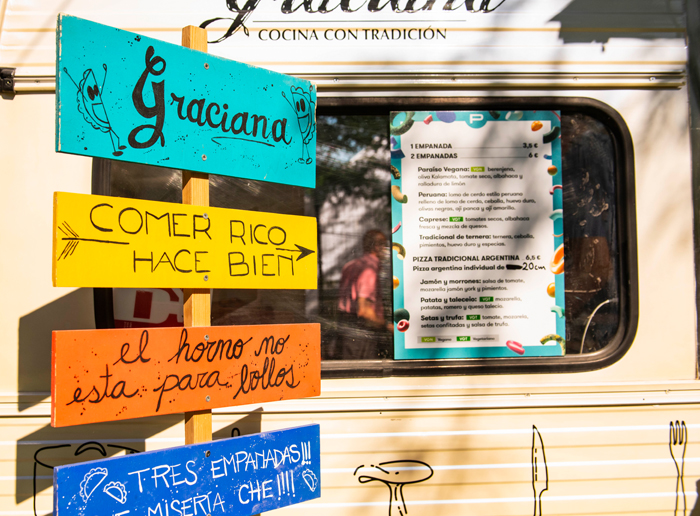 Graciana
COCINA CON TRADICIÓN
Graciana
COMER RICO
HACE BIEN
el horno no
esta para bollos
TRES EMPANADAS!!!
MISERIA CHE!!!!
P
1 EMPANADA 3,5 €
2 EMPANADAS 6 €
Paraíso Vegana: berenjena,
oliva Kalamata, tomate seco, albahaca y
ralladura de limón.
Peruana: lomo de cerdo estilo peruano
relleno de lomo de cerdo, cebolla, huevo duro,
olivas negras, ají panca y ají amarillo.
Caprese: VGT tomates secos, albahaca
fresca y mezcla de quesos.
Tradicional de ternera: ternera, cebolla,
pimientos, huevo duro y especias.
PIZZA TRADICIONAL ARGENTINA 6,5 €
Pizza argentina individual de 20cm
Jamón y morrones: salsa de tomate,
mozzarella jamón york y pimientos.
Patata y taleccio: VGT mozarella,
patatas, romero y queso talecio.
Setas y trufa: VGT tomate, mozarella,
setas confitadas y salsa de trufa.
Vegana VGT Vegetariana